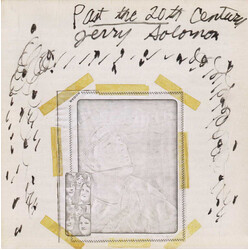 Past the 20th Century
Jerry Solomon